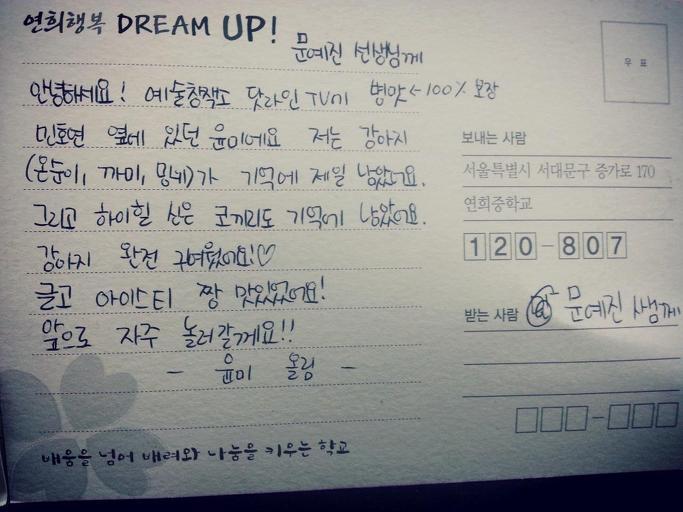 연희행복 DREAM UP!
문예진 선생님께
안녕하세요! 예술창작소 닷라인TV에 병맛←100% 보장
민호연 옆에 있던 윤미에요 저는 강아지
(온순이, 까미, 망치)가 기억에 제일 남았어요.
그리고 하이힐 신은 코끼리도 기억에 남았어요.
강아지 완전 귀여웠어요!♡
글고 아이스티 짱 맛있었어요!
앞으로 자주 놀러갈게요!!
- 윤미 올림 -
배움을 넘어 배려와 나눔을 키우는 학교
우표
보내는 사람
서울특별시 서대문구 증가로 170
연희중학교
120-807
받는 사람 문예진 쌤께